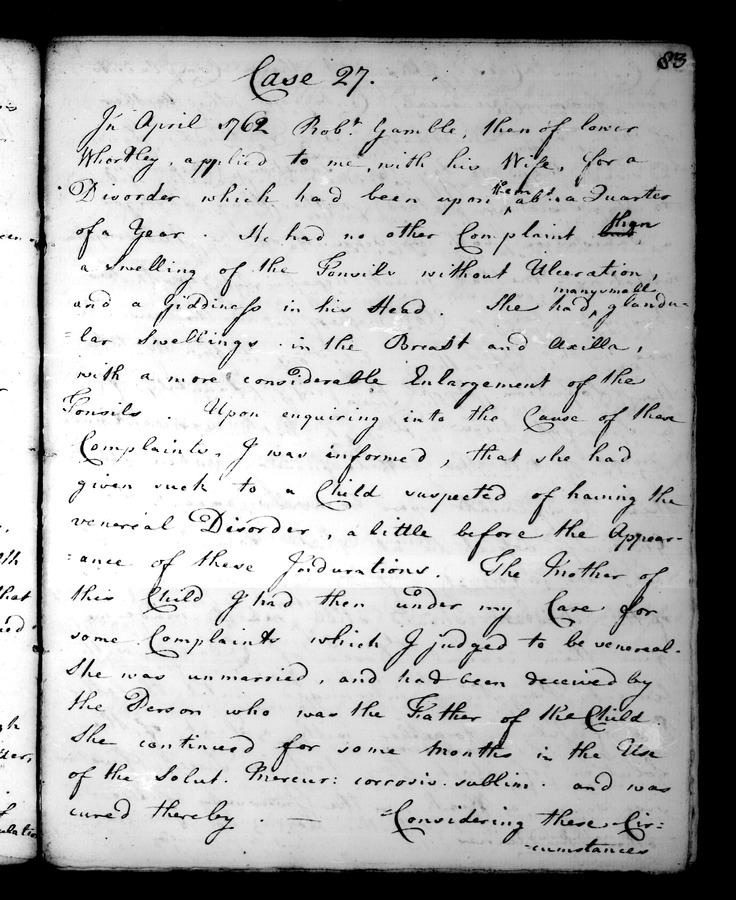 83
Case 27.
In April 1762 Robt. Gamble, then of lower
Whortley, applied to me, with his Wife, for a
Disorder which had been upon them abt. a Quarter
of a Year. He had no other Complaint than
a Swelling of the Tonsils without Ulceration,
and a giddiness in his Head. She had many small glandu-
=lar Swellings in the Breast and Axilla,
with a more considerable Enlargement of the
Tonsils. Upon enquiring into the Cause of these
Complaints, I was informed, that she had
given suck to a Child suspected of having the
venereal Disorder, a little before the Appear-
=ance of these Indurations. The Mother of
this Child I had then under my Care for
some Complaints which I judged to be venereal.
She was unmarried, and had been deceived by
the Person who was the Father of the Child
She continued for some Months in the Use
of the Solut. Mercur: corrosiv. sublim. and was
cured thereby. — Considering these Cir=
=cumstances